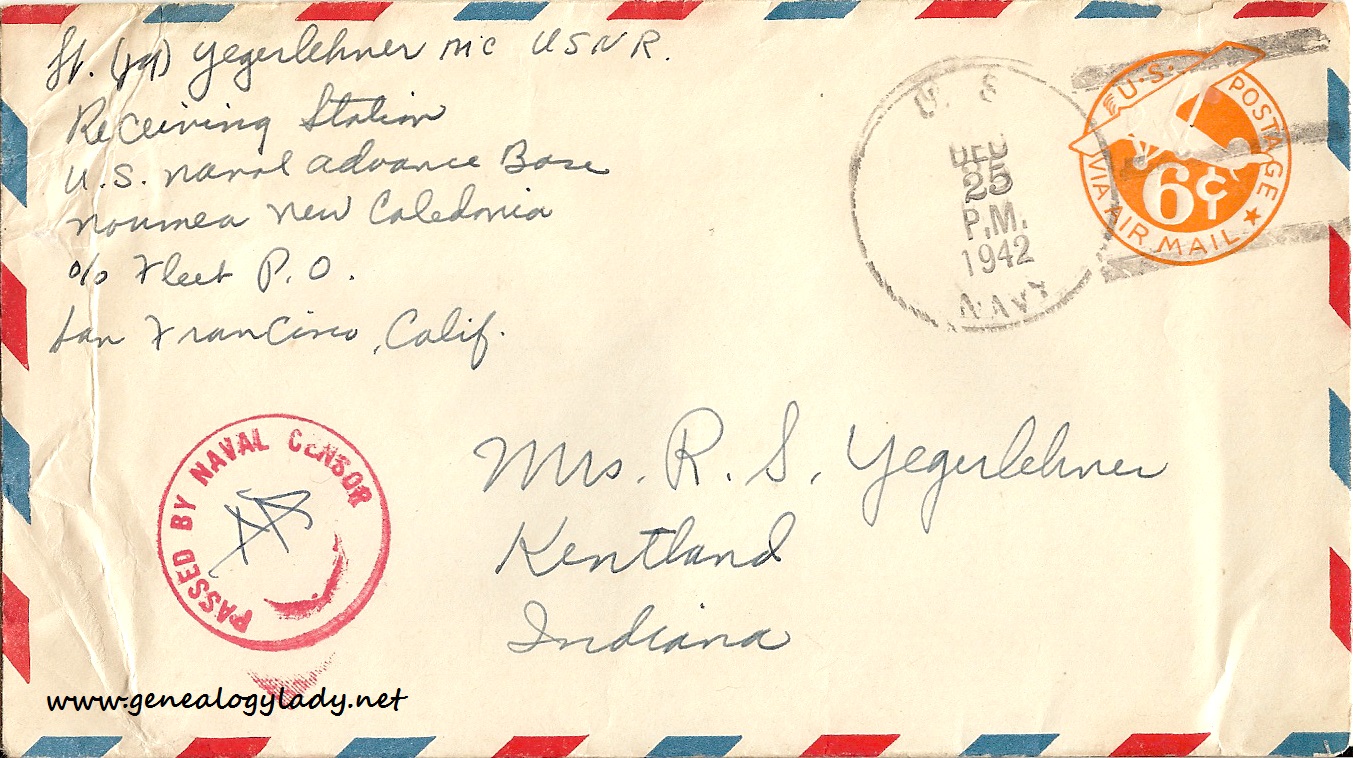 Lt. (jg) Yegerlehner MC USNR.
Receiving Station
U.S. Naval Advance Base
Noumea New Caledonia
c/o Fleet P.O.
San Francisco, Calif.
U. S.
DEC
25
P.M.
1942
NAVY
U.S. POSTAGE
6¢
VIA AIR MAIL
PASSED BY NAVAL CENSOR
Mrs. R. S. Yegerlehner
Kentland
Indiana
www.genealogylady.net